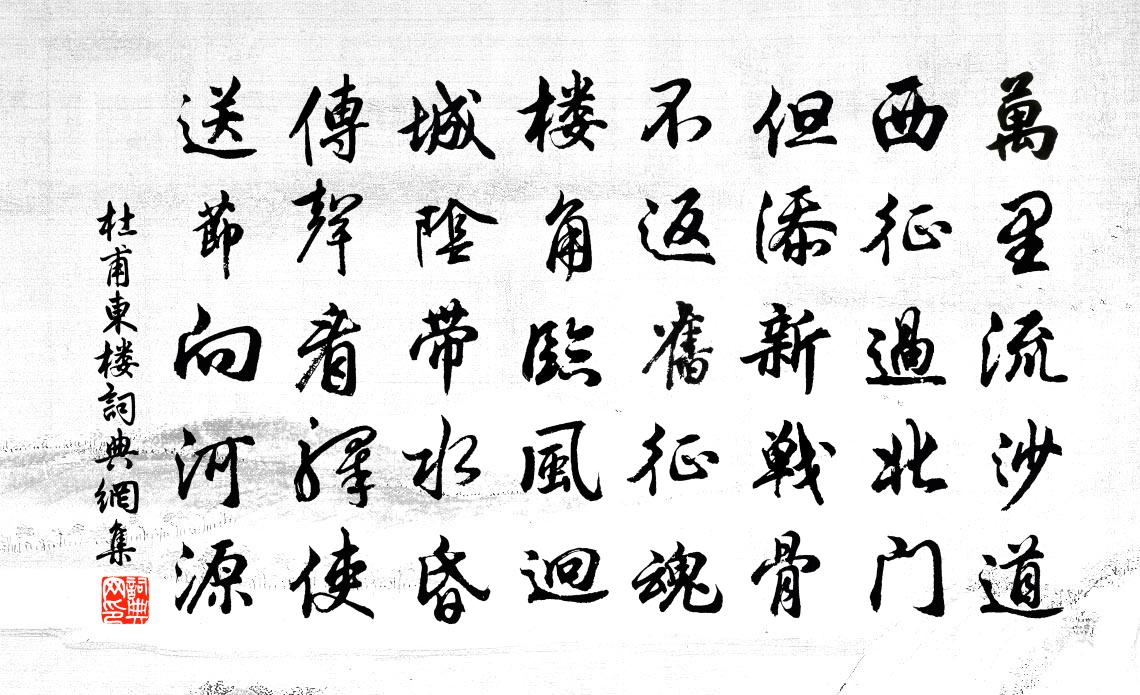 萬里流沙道
西征過北门
但添新戦骨
不返舊征魂
楼角臨風迥
城陰帶水昏
傳聲看驛使
送節向河源
杜甫東楼詞典網集
詞典网印